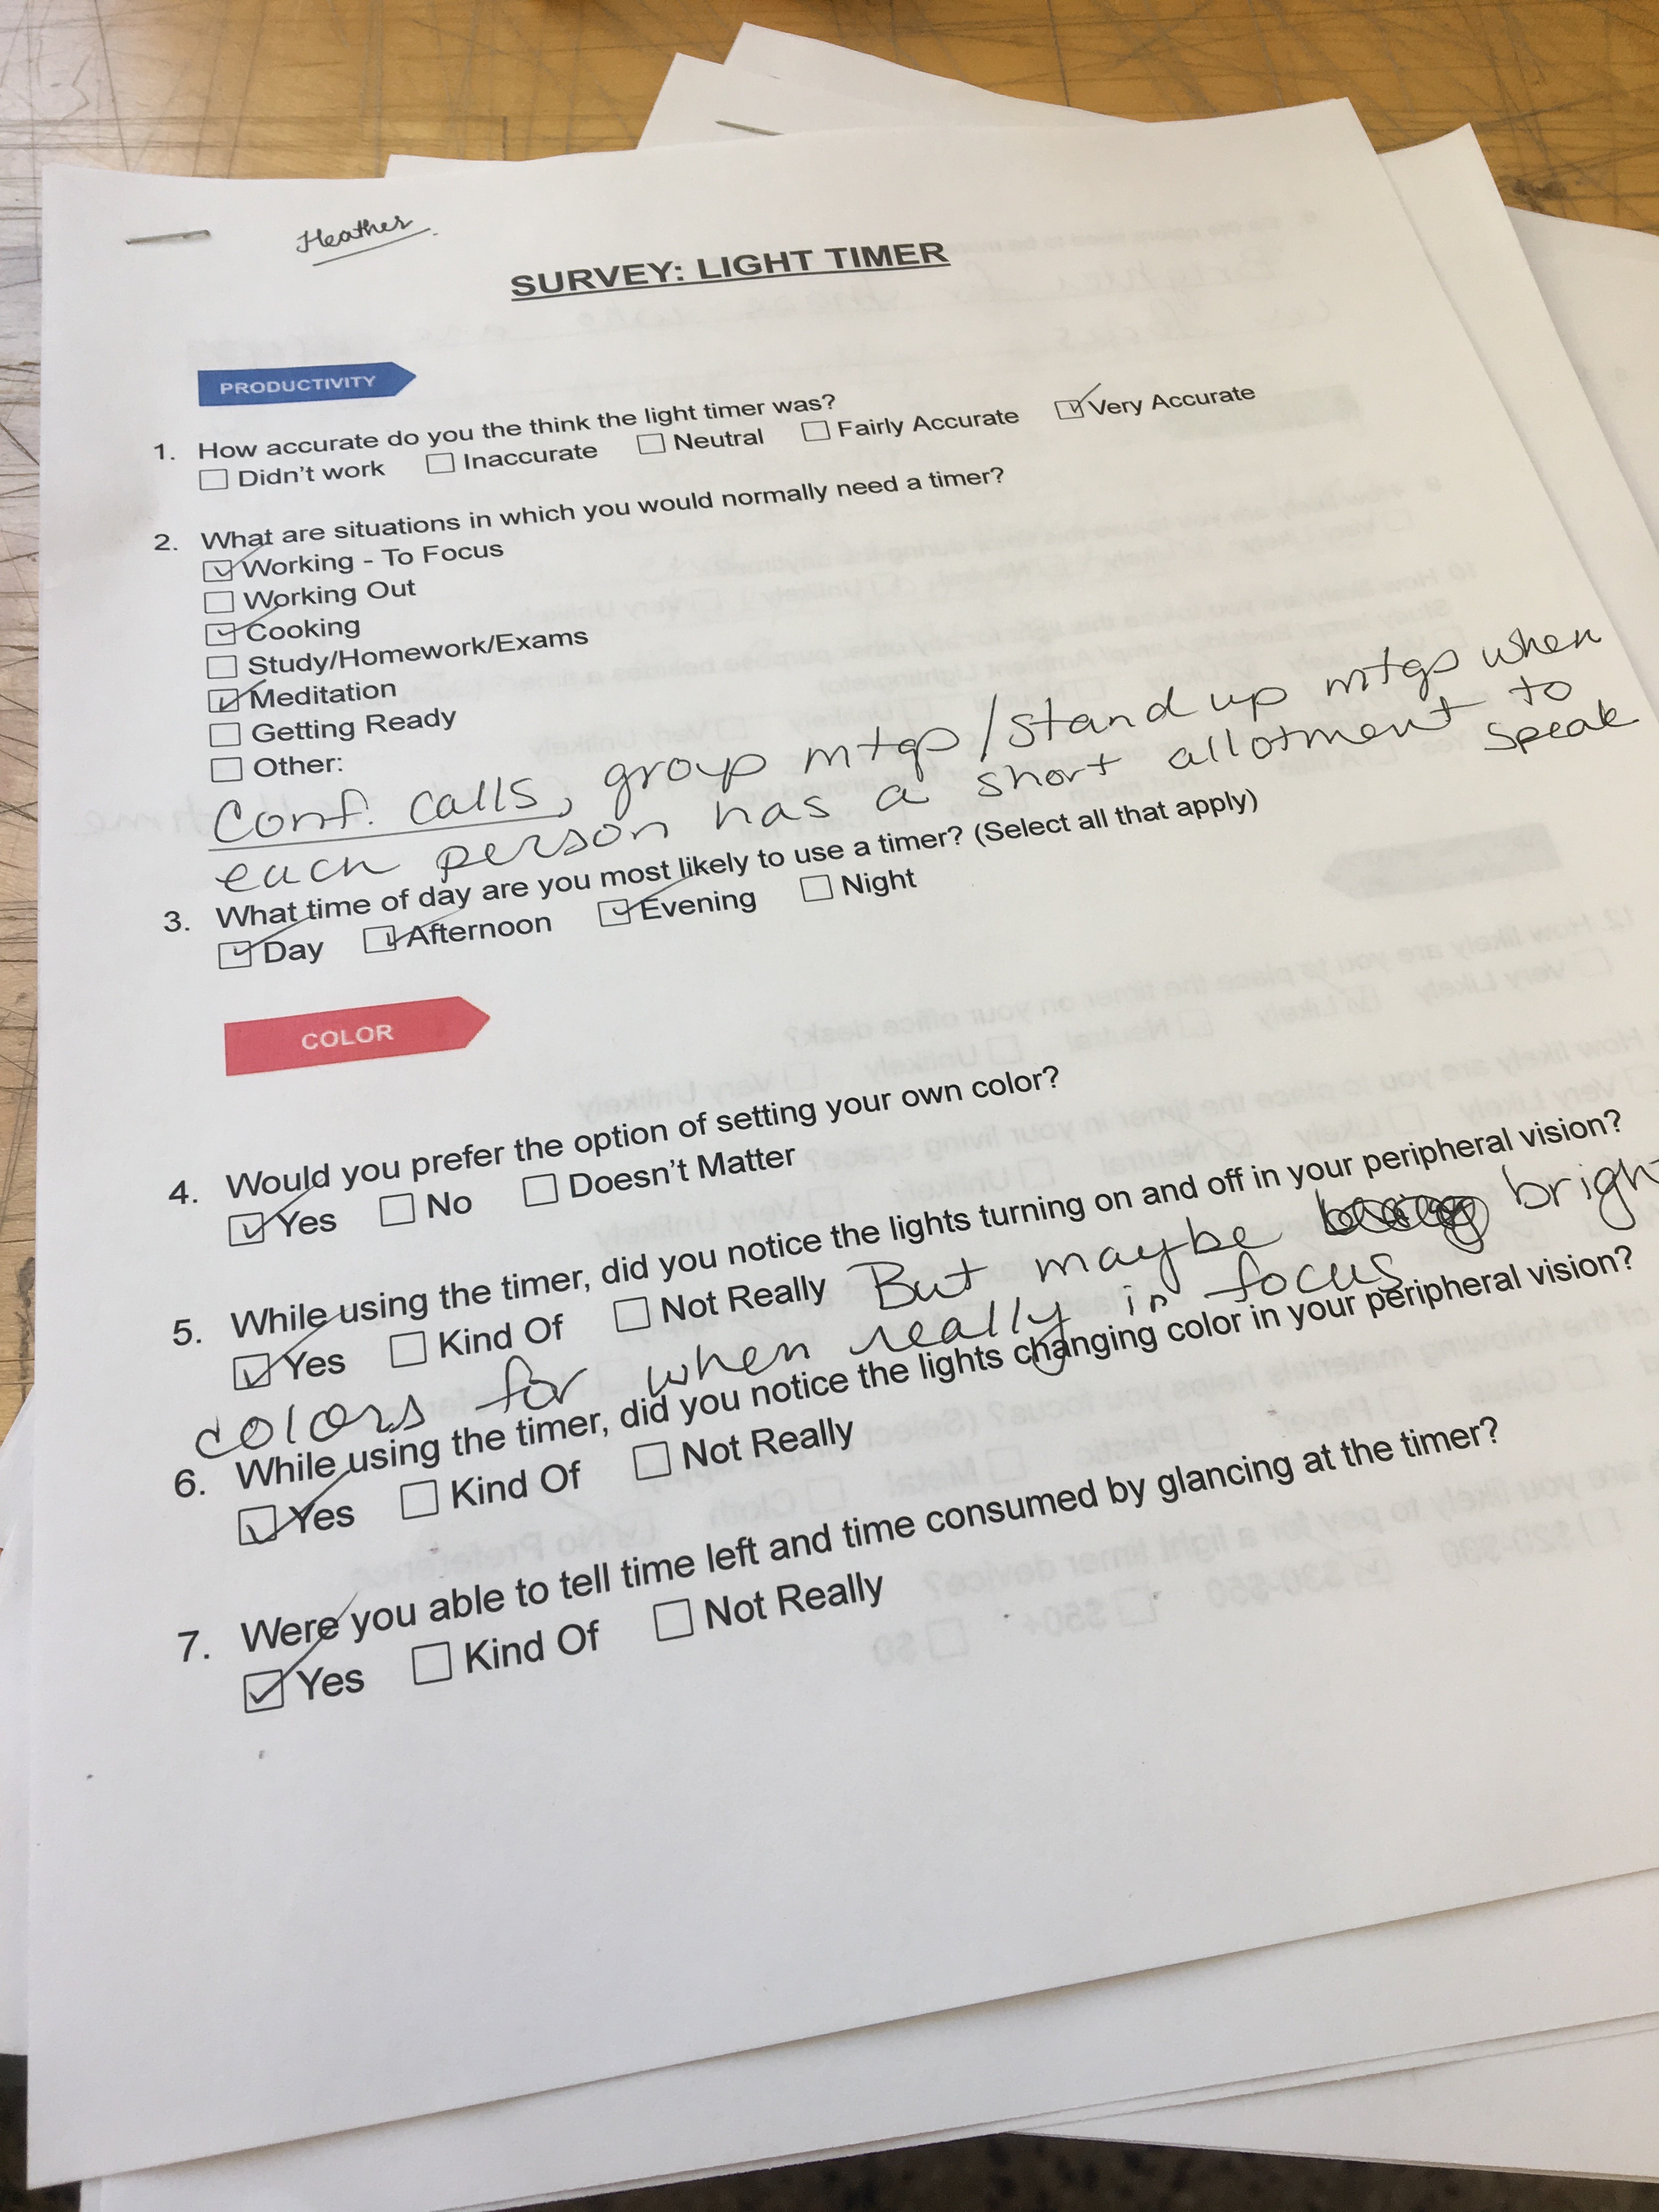 Heather
SURVEY: LIGHT TIMER
PRODUCTIVITY
1. How accurate do you the think the light timer was?
☐ Didn't work ☐ Inaccurate ☐ Neutral ☐ Fairly Accurate ☑ Very Accurate
2. What are situations in which you would normally need a timer?
☑ Working - To Focus
☐ Working Out
☑ Cooking
☐ Study/Homework/Exams
☑ Meditation
☐ Getting Ready
☐ Other:
Conf. calls, group mtgs/stand up mtgs when
each person has a short allotment to
speak
3. What time of day are you most likely to use a timer? (Select all that apply)
☑ Day ☑ Afternoon ☑ Evening ☐ Night
COLOR
4. Would you prefer the option of setting your own color?
☑ Yes ☐ No ☐ Doesn't Matter
5. While using the timer, did you notice the lights turning on and off in your peripheral vision?
☑ Yes ☐ Kind Of ☐ Not Really But maybe bright
colors for when really in focus
6. While using the timer, did you notice the lights changing color in your peripheral vision?
☑ Yes ☐ Kind Of ☐ Not Really
7. Were you able to tell time left and time consumed by glancing at the timer?
☑ Yes ☐ Kind Of ☐ Not Really